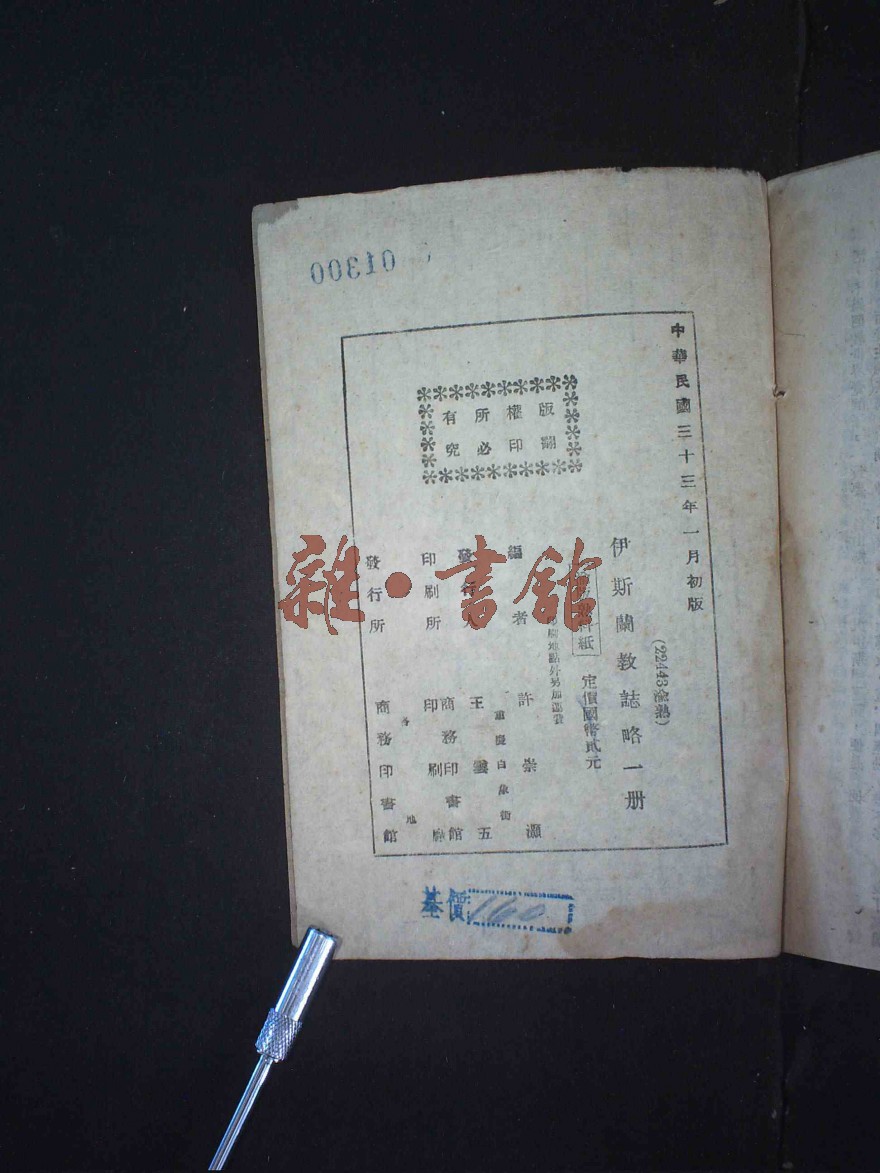 中華民國三十三年一月初版
(22443渝熟)
伊斯蘭教誌略一册
料紙
定價國幣貳元
印刷地點外另加運費
版權所有
翻印必究
編者 許崇灝
重慶白象街
發行人 王雲五
印刷所 商務印書館
印刷廠
各地
發行所 商務印書館
01300
基價
雜·書館